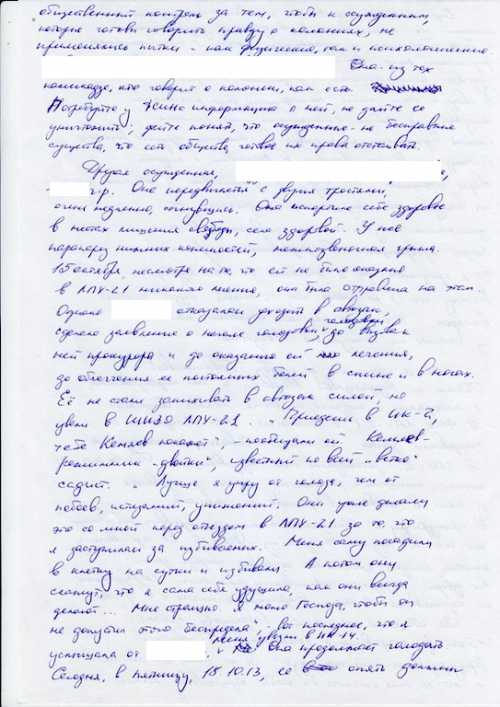 общественный контроль за тем, чтобы к осужденным,
которые готовы говорить правду о колониях, не
применялись пытки – как физические, так и психологические.
Она из тех
немногих, кто говорит о колонии, как есть.
Потребуйте у ФСИНа информацию о ней, не дайте ее
уничтожить, дайте понять, что осужденные – не бесправные
существа, что есть общество, готовое их права отстаивать.
Другая осужденная,
г.р. Она передвигается с двумя тростями,
очень медленно, согнувшись. Она испортила себе здоровье
в местах лишения свободы, села здоровой. У нее
парапарез нижних конечностей, межпозвоночная грыжа.
15 октября, несмотря на то, что ей не было оказано
в ЛПУ-21 никакого лечения, она была отправлена на этап.
Однако отказалась уходить в автозак,
сделала заявление о начале голодовки, голодовки до вызова к
ней прокурора и до оказания ей лечения,
до облегчения ее постоянных болей в спине и в ногах.
Её не стали запихивать в автозак силой, но
увели в ШИЗО ЛПУ-21. „Приедешь в ИК-2,
тебе покажет", – пообещали ей.
„двойки", известный на всей „ветке"
садист. „Лучше я умру от голода, чем от
побоев, истязаний, унижений. Они уже делали
это со мной перед отъездом в ЛПУ-21 за то, что
я заступилась за избиваемых. Меня саму посадили
в клетку на сутки и избивали. А потом они
скажут, что я сама себя удушила, как они всегда
делают... Мне страшно. Я молю Господа, чтобы он
не допустил этого беспредела", – вот последнее, что я
услышала от , меня увезли в ИК-14. Она продолжает голодать
Сегодня, в пятницу, 18.10.13, ее опять должны